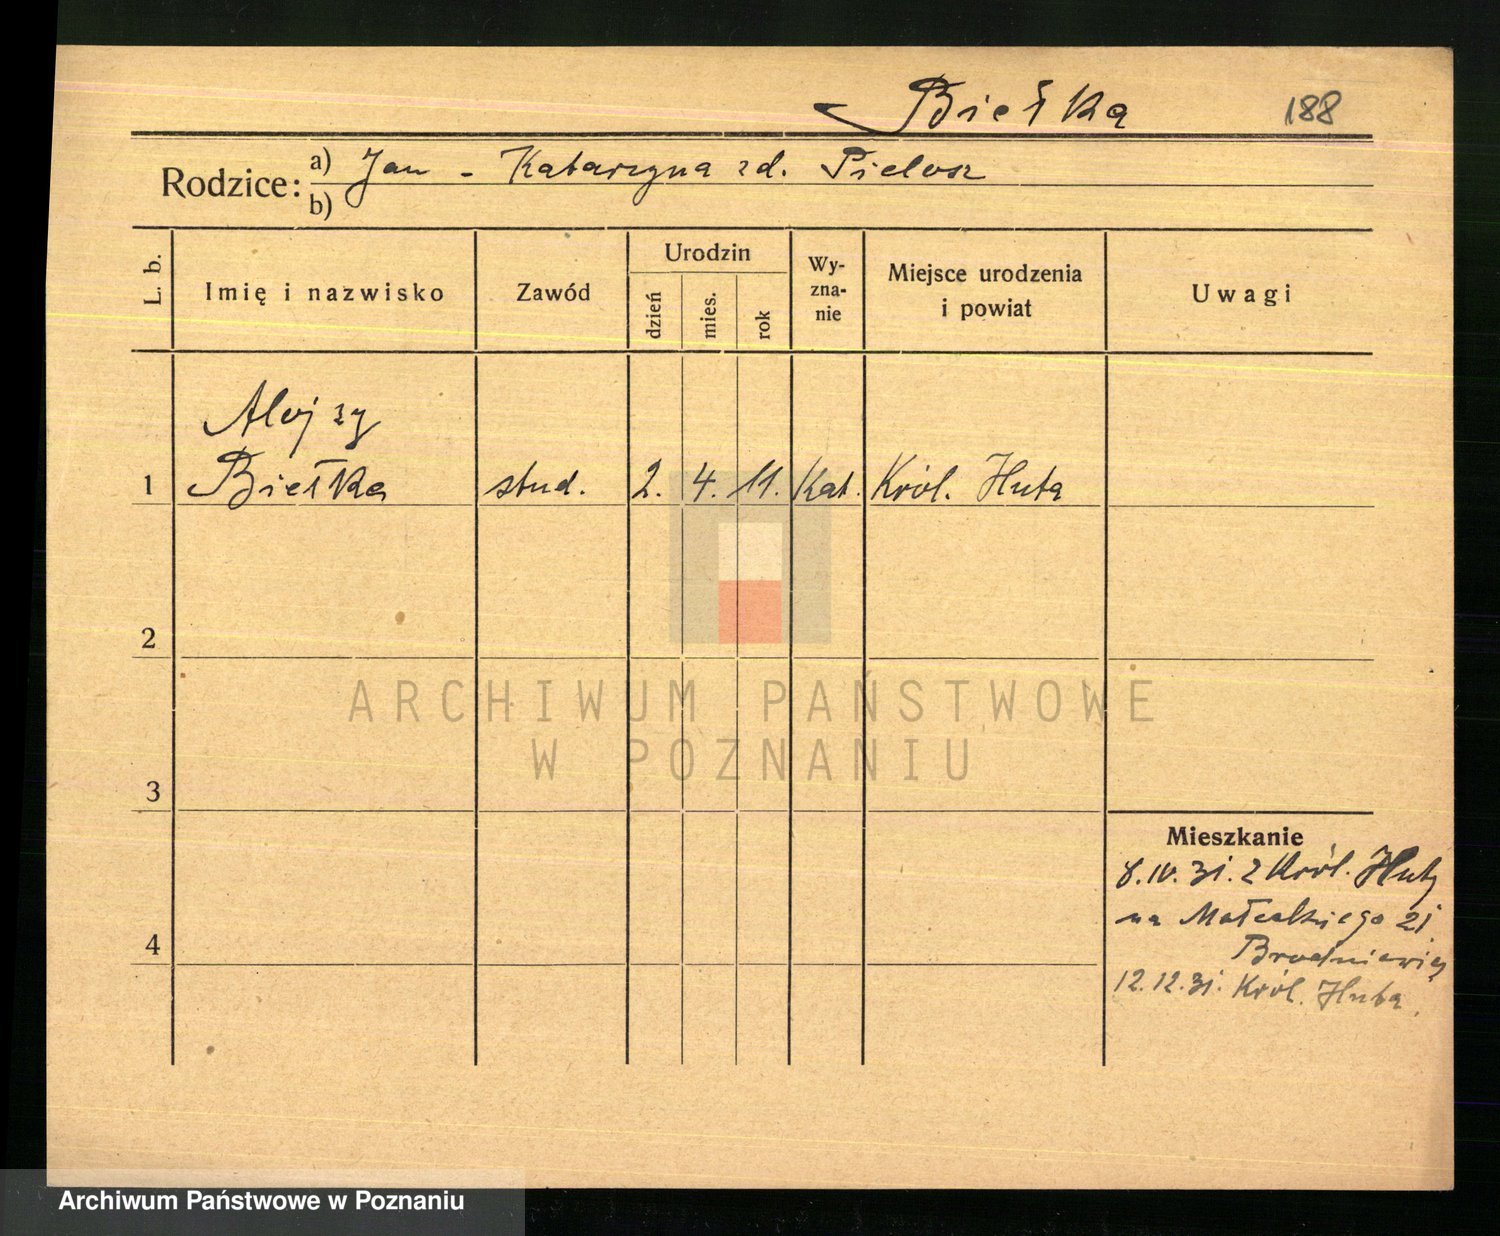 Biełka 188
Rodzice: a) Jan - Katarzyna zd. Pielosz
b)
L. b. Imię i nazwisko Zawód Urodzin dzień mies. rok Wy-zna-nie Miejsce urodzenia i powiat Uwagi
Alojzy
1 Biełka stud. 2. 4. 11. Kat. Król. Huta
2
ARCHIWUM PAŃSTWOWE
W POZNANIU
3
Mieszkanie
8.IV.31. z Król. Huty
na Małeckiego 21
4
12.12.31. Król. Huta.
Archiwum Państwowe w Poznaniu